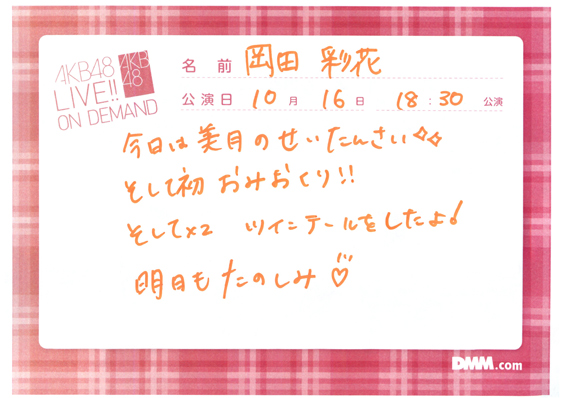 AKB48
LIVE!!
ON DEMAND
AKB
48
名前 岡田 彩花
公演日 10月 16日 18:30 公演
今日は美月のせいたんさい✧✧
そして初 おみおくり!!
そして×2 ツインテールをしたよ!
明日もたのしみ♡
DMM.com